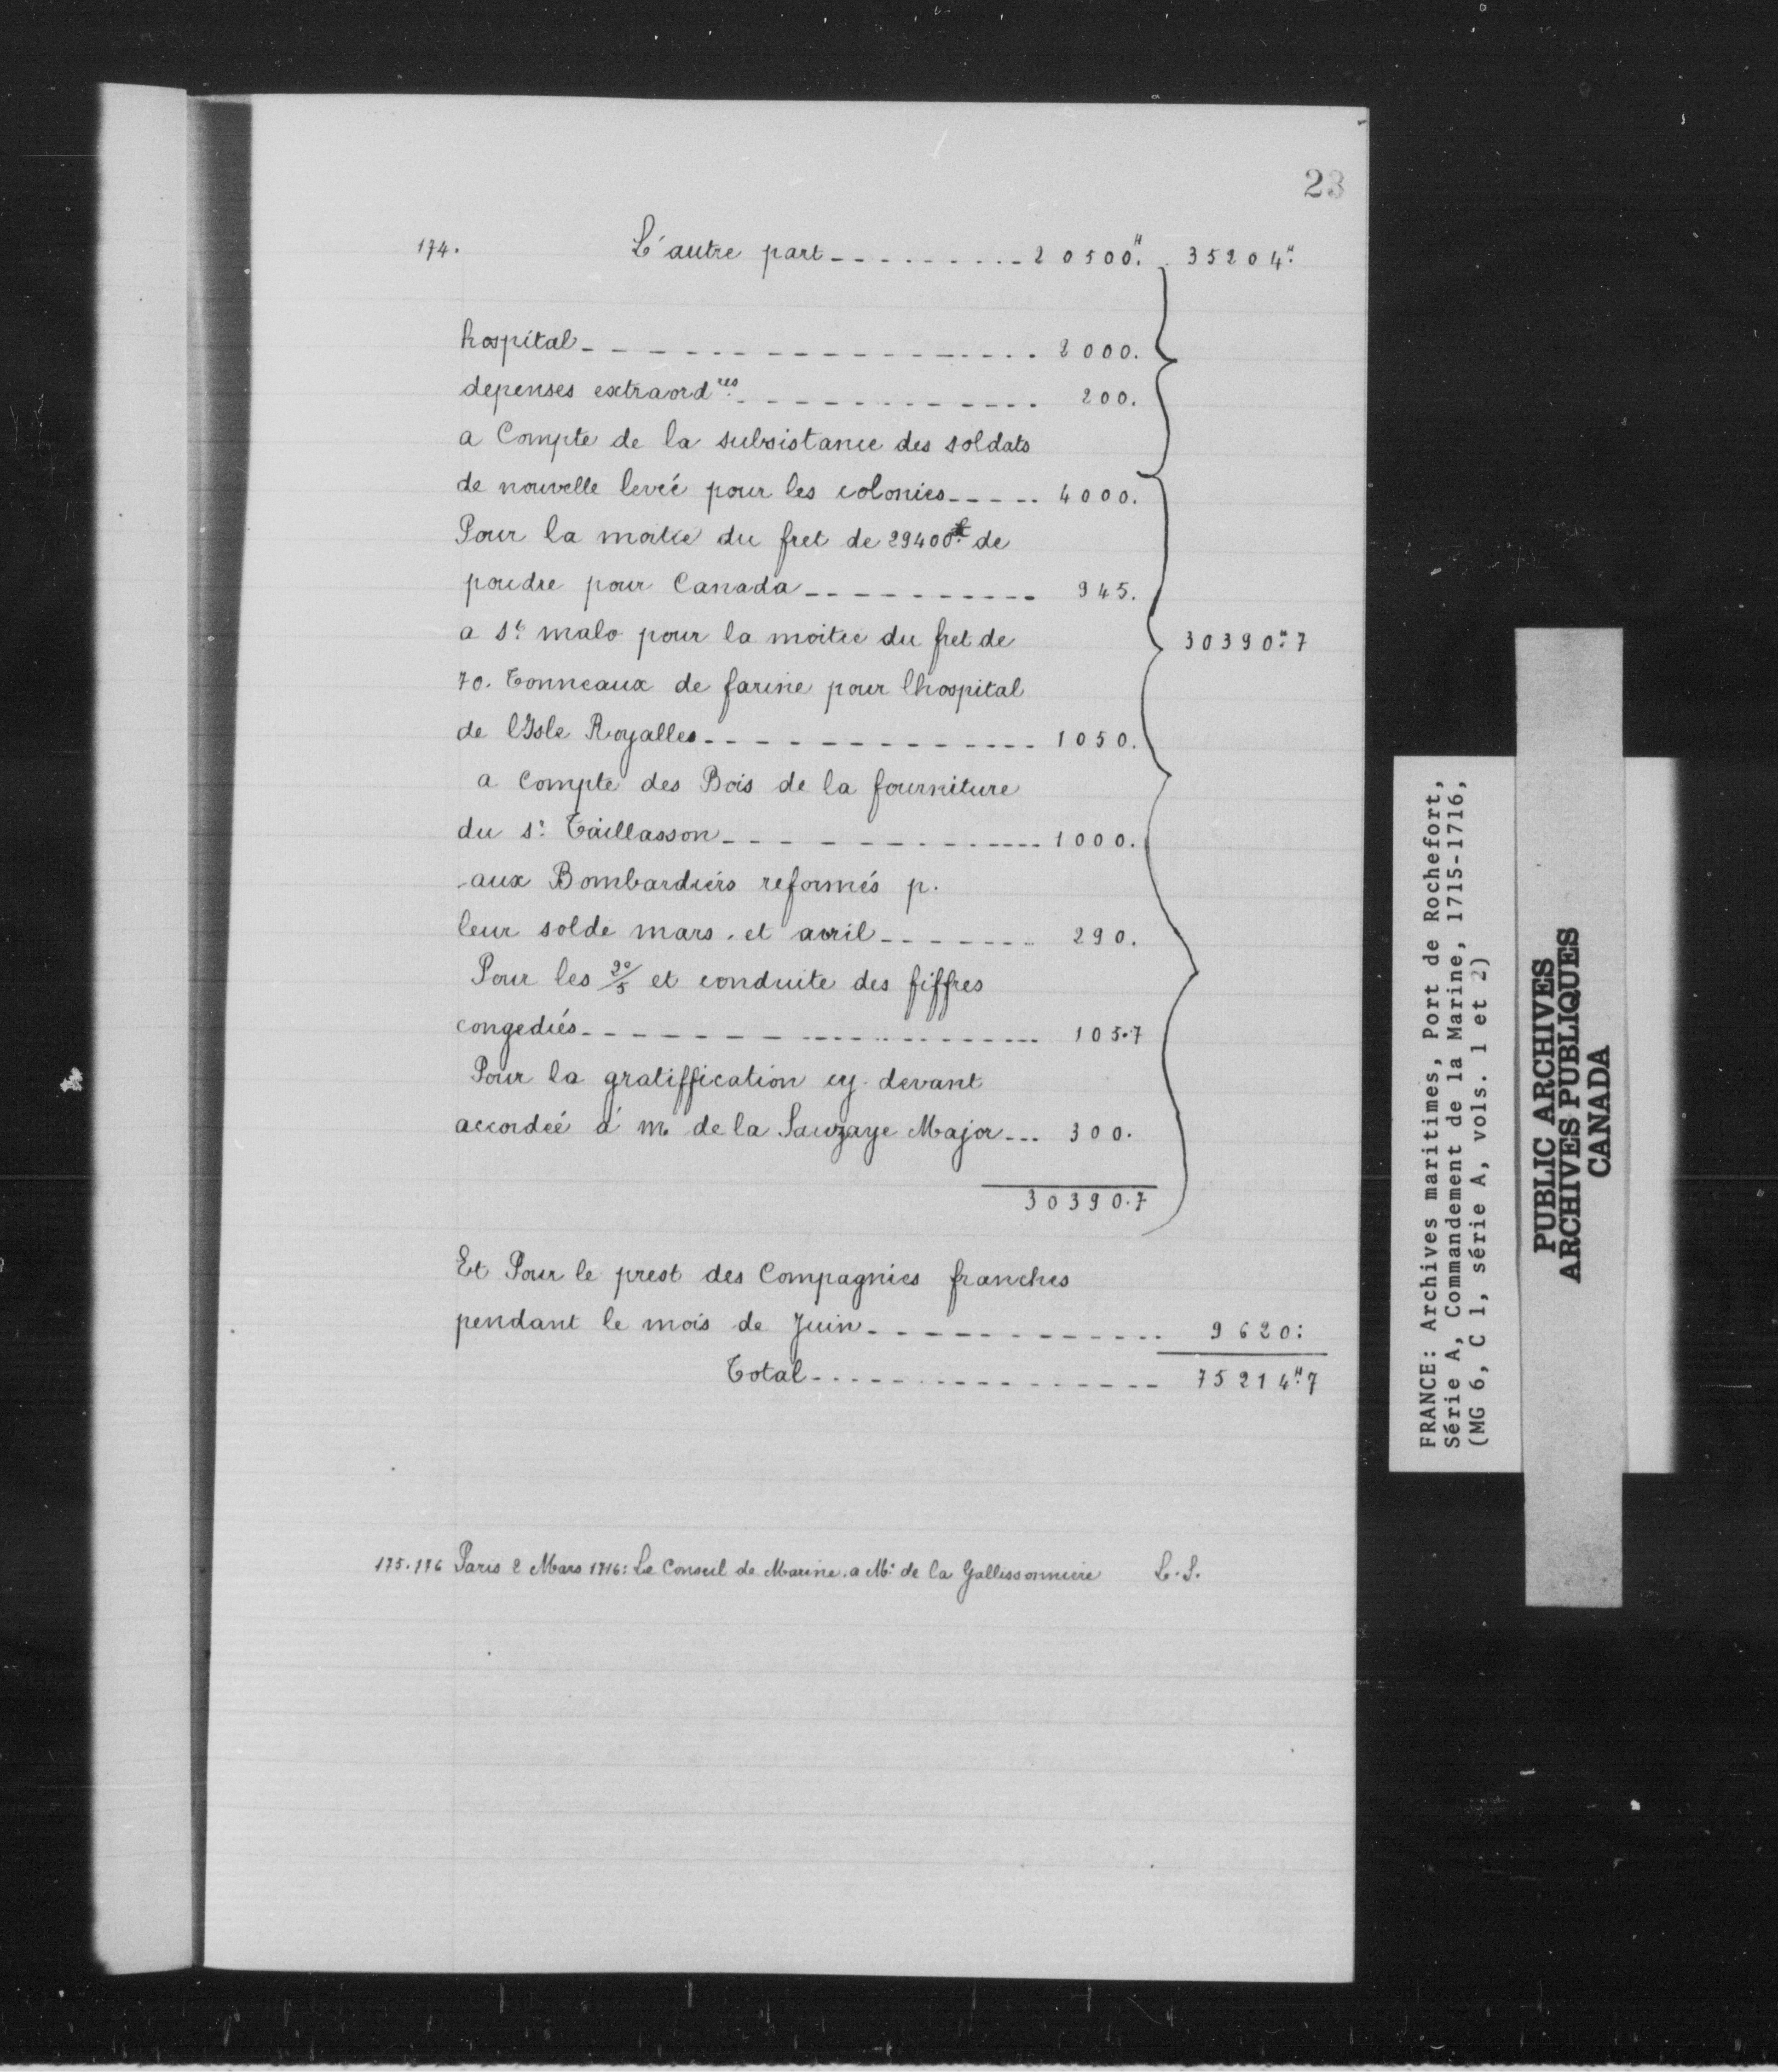 23
174. L'autre part---------- 20500." 35204."
hospital------------------ 2000.
depenses extraord.res------------ 200.
a Compte de la subsistance des soldats
de nouvelle levée pour les colonies----- 4000.
Pour la moitie du fret de 29400 de
poudre pour Canada----------- 945.
a St malo pour la moitie du fret de 30390." 7
70. Tonneaux de farine pour lhospital
de lIsle Royalles-------------- 1050.
a Compte des Bois de la fourniture
du Sr. Taillasson-------------- 1000.
aux Bombardiers reformés p.
leur solde mars. et avril------- 290.
Pour les 20/5 et conduite des fiffres
congediés------------------ 105.7
Pour la gratiffication cy-devant
accordée à m de la Sauzaye Major--- 300.
30390.7
Et Pour le prest des Compagnies franches
pendant le mois de Juin------------- 9620:
Total----------------- 75214." 7
175.176 Paris 2 Mars 1716: Le Conseil de Marine. a Mr. de la Gallissonniere L.S.
FRANCE: Archives maritimes, Port de Rochefort,
Série A, Commandement de la Marine, 1715-1716,
(MG 6, C 1, série A, vols. 1 et 2)
PUBLIC ARCHIVES
ARCHIVES PUBLIQUES
CANADA